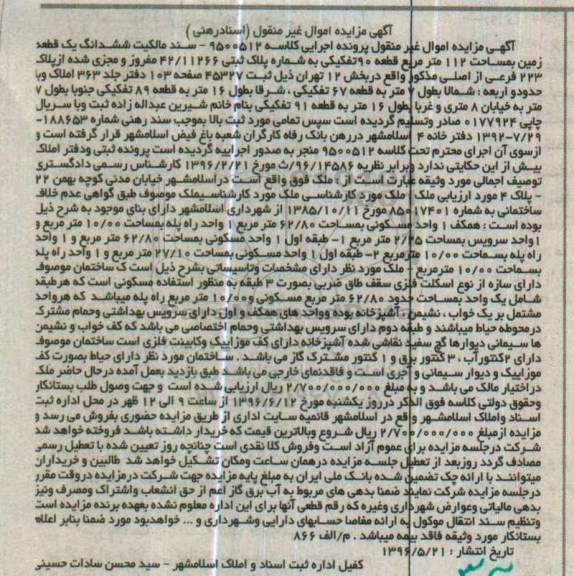 آگهی مزایده اموال غیر منقول (اسنادرهنی)
آگهی مزایده اموال غیر منقول پرونده اجرایی کلاسه ۹۵۰۰۵۱۲ - سند مالکیت ششدانگ یک قطعه
زمین بمساحت ۱۱۲ متر مربع قطعه ۹۰تفکیکی به شماره پلاک ثبتی ۴۲/۱۱۲۶۶ مفروز و مجزی شده ازپلاک
۲۲۳ فرعی از اصلی مذکور واقع دربخش ۱۲ تهران ذیل ثبت ۴۵۳۲۷ صفحه ۱۰۳ دفتر جلد ۳۶۳ املاک وبا
حدودو اربعه : شمالا بطول ۷ متر به قطعه ۶۷ تفکیکی ، شرقا بطول ۱۶ متر به قطعه ۸۹ تفکیکی جنوبا بطول ۷
متر به خیابان ۸ متری و غربا بطول ۱۶ متر به قطعه ۹۱ تفکیکی بنام خانم شیرین عبداله زاده ثبت وبا سریال
چاپی ۰۱۷۷۹۲۴ صادر وتسلیم گردیده است سپس تمامی مورد ثبت بالا بموجب سند رهنی شماره ۱۸۸۶۵۳-
۱۳۹۲-۷/۲۹ دفتر خانه ۴ اسلامشهر دررهن بانک رفاه کارگران شعبه باغ فیض اسلامشهر قرار گرفته است و
ازسوی آن اجرای محترم تحت کلاسه ۹۵۰۰۵۱۲ منجر به صدور اجراییه گردیده است پرونده ثبتی ودفتر املاک
بیش از این حکایتی ندارد وبرابر نظریه ۹۶/۱۴۵۸۶/ث مورخ ۱۳۹۶/۲/۲۱ کارشناس رسمی دادگستری
توصیف اجمالی مورد وثیقه عبارت است از : ملک فوق واقع است دراسلامشهر خیابان مدنی کوچه بهمن ۲۲
- پلاک ۴ مورد ارزیابی ملک : ملک مورد کارشناسی ملک مورد کارشناسیملک موصوف طبق گواهی عدم خلاف
ساختمانی به شماره ۸۵۰۱۷۴۰۱ مورخ ۱۳۸۵/۱۰/۱۱ از شهرداری اسلامشهر دارای بنای موجود به شرح ذیل
بوده است : همکف ۱ واحد مسکونی بمساحت ۶۲/۸۰ متر مربع ۱ واحد راه پله بمساحت ۱۰/۰۰ متر مربع و
۱واحد سرویس بمساحت ۲/۲۵ متر مربع ۱- طبقه اول ۱ واحد مسکونی بمساحت ۶۲/۸۰ متر مربع و ۱ واحد
راه پله بمساحت ۱۰/۰۰ مترمربع ۲- طبقه اول ۱ واحد مسکونی بمساحت ۲۷/۱۰ متر مربع و ۱ واحد راه پله
بمساحت ۱۰/۰۰ مترمربع - ملک مورد نظر دارای مشخصات وتاسیساتی بشرح ذیل است ک ساختمان موصوف
دارای سازه از نوع اسکلت فلزی سقف طاق ضربی بصورت ۳ طبقه به منظور استفاده مسکونی است که هرطبقه
شامل یک واحد بمساحت حدود ۶۲/۸۰ متر مربع مسکونی و۱۰/۰۰ متر مربع راه پله میباشد که هرواحد
مشتمل بر یک خواب ، نشیمن ، آشپزخانه بوده وواحد های همکف و اول دارای سرویس بهداشتی وحمام مشترک
درمحوطه حیاط میباشند و طبقه دوم دارای سرویس بهداشتی وحمام اختصاصی می باشد که کف خواب و نشیمن
ها سیمانی دیوارها گچ سفید نقاشی شده آشپزخانه دارای کف موزاییک وکابینت فلزی است ساختمان موصوف
دارای ۲کنتورآب ، ۳ کنتور برق و ۱ کنتور مشترک گاز می باشد . ساختمان مورد نظر دارای حیاط بصورت کف
موزاییک و دیوار سیمانی و آجری است و فاقدنمای خارجی می باشد طبق بازدید بعمل آمده درحال حاضر ملک
دراختیار مالک می باشد و به مبلغ ۲/۷۰۰/۰۰۰/۰۰۰ ریال ارزیابی شده است و جهت وصول طلب بستانکار
وحقوق دولتی کلاسه فوق الذکر درروز یکشنبه مورخ ۱۳۹۶/۶/۱۲ از ساعت ۹ الی ۱۲ ظهر در محل اداره ثبت
اسناد واملاک اسلامشهر واقع در اسلامشهر قائمیه سایت اداری از طریق مزایده حضوری بفروش می رسد و
مزایده ازمبلغ ۲/۷۰۰/۰۰۰/۰۰۰ ریال شروع وبالاترین قیمت که خریدار داشته باشد فروخته خواهد شد
شرکت درجلسه مزایده برای عموم آزاد است وفروش کلا نقدی است چنانچه روز تعیین شده با تعطیل رسمی
مصادف گردد روزبعد از تعطیل جلسه مزایده درهمان ساعت ومکان تشکیل خواهد شد طالبین و خریداران
میتوانند با ارائه چک تضمین شده بانک ملی ایران به مبلغ پایه مزایده جهت شرکت درمزایده دروقت مقرر
درجلسه مزایده شرکت نمایند ضمنا بدهی های مربوط به آب برق گاز اعم از حق انشعاب واشتراک ومصرف ونیز
بدهی مالیاتی وعوارض شهرداری وغیره که رقم قطعی آنها برای این اداره معلوم نشده بعهده برنده مزایده است
وتنظیم سند انتقال موکول به ارائه مفاصا حسابهای دارایی وشهرداری و ... خواهدبود مورد ضمنا بنابر اعلام
بستانکار مورد وثیقه فاقد بیمه میباشد . م/الف ۸۶۶
تاریخ انتشار : ۱۳۹۶/۵/۲۱
کفیل اداره ثبت اسناد و املاک اسلامشهر - سید محسن سادات حسینی